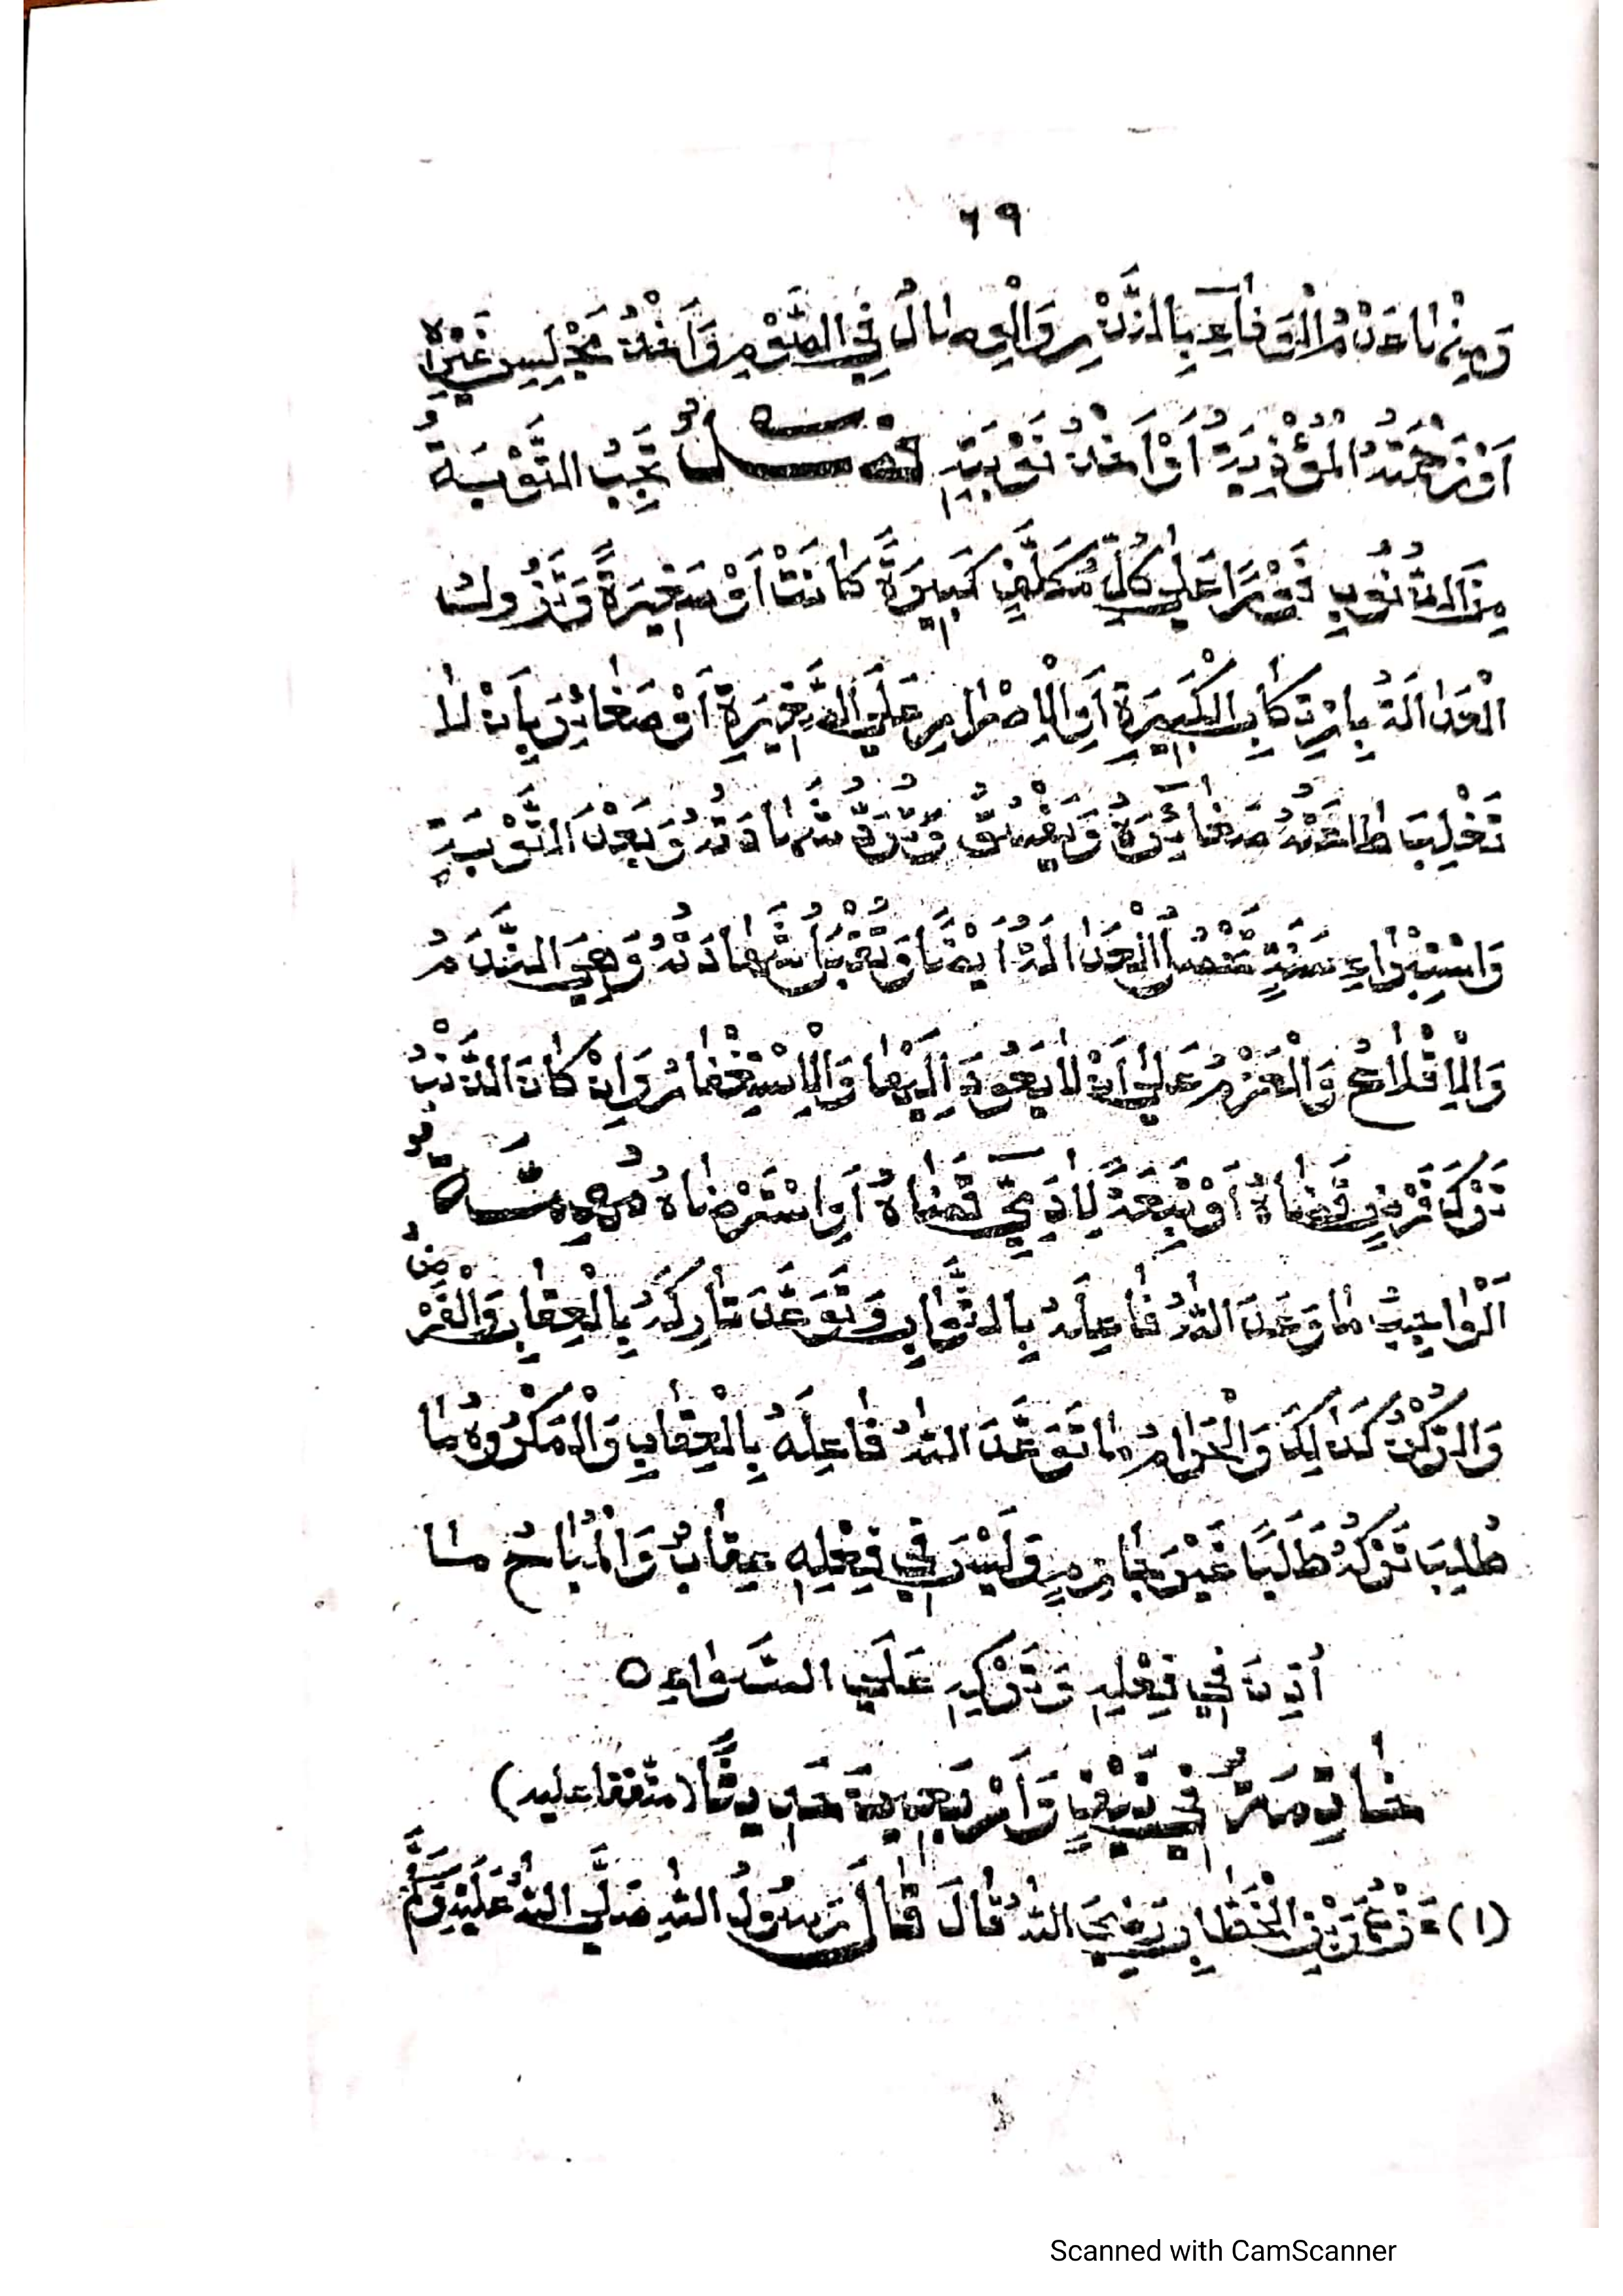 ٦٩
وَمِنْهَا عَدَمُ الْوَفَاءِ بِالنَّذْرِ وَالْوِصَالُ فِي الصَّوْمِ وَأَخْذُ مَجْلِسِ غَيْرِهِ
أَوْ زَحْمَتُهُ الْمُؤْذِيَةُ أَوْ أَخْذُ نَوْبَتِهِ فَصْلٌ تَجِبُ التَّوْبَةُ
مِنَ الذُّنُوبِ فَوْرًا عَلَى كُلِّ مُكَلَّفٍ كَبِيرَةً كَانَتْ أَوْ صَغِيرَةً وَتَزُولُ
الْعَدَالَةُ بِارْتِكَابِ الْكَبِيرَةِ أَوِ الْإِصْرَارِ عَلَى الصَّغِيرَةِ أَوْ صَغَائِرَ بِأَنْ لَا
تَغْلِبَ طَاعَتُهُ صَغَائِرَهُ وَيَفْسُقُ وَتُرَدُّ شَهَادَتُهُ وَبَعْدَ التَّوْبَةِ
وَاسْتِبْرَاءِ سَنَةٍ تَحْصُلُ الْعَدَالَةُ أَيْضًا وَتُقْبَلُ شَهَادَتُهُ وَهِيَ النَّدَمُ
وَالْإِقْلَاعُ وَالْعَزْمُ عَلَى أَنْ لَا يَعُودَ إِلَيْهَا وَالْإِسْتِغْفَارُ وَإِنْ كَانَ الذَّنْبُ
تَرْكَ فَرْضٍ قَضَاهُ أَوْ تَبِعَةً لِآدَمِيٍّ قَضَاهُ أَوِ اسْتَرْضَاهُ مُهِمَّةٌ
اَلْوَاجِبُ مَا وَعَدَ اللهُ فَاعِلَهُ بِالثَّوَابِ وَتَوَعَّدَ تَارِكَهُ بِالْعِقَابِ وَالْفَرْضُ
وَالرُّكْنُ كَذَلِكَ وَالْحَرَامُ مَا تَوَعَّدَ اللهُ فَاعِلَهُ بِالْعِقَابِ وَالْمَكْرُوهُ مَا
طُلِبَ تَرْكُهُ طَلَبًا غَيْرَ جَازِمٍ وَلَيْسَ فِي فِعْلِهِ عِقَابٌ وَالْمُبَاحُ مَا
أُذِنَ فِي فِعْلِهِ وَتَرْكِهِ عَلَى السَّوَاءِ ٥
خَاتِمَةٌ فِي نَيْفٍ وَأَرْبَعِينَ حَدِيثًا (متفقا عليه)
(١) عَنْ عُمَرَ بْنِ الْخَطَّابِ رَضِيَ اللهُ قَالَ قَالَ رَسُولُ اللهِ صَلَّى اللهُ عَلَيْهِ وَسَلَّمَ
Scanned with CamScanner